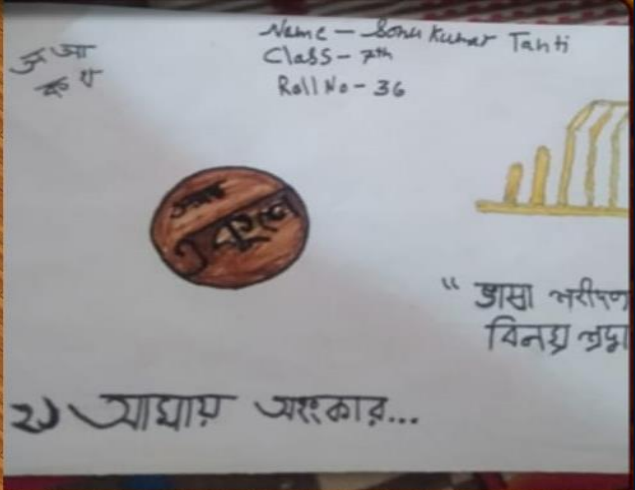 Name - Sonu Kumar Tanti
Class - 7th
Roll No - 36
অ আ
ক খ
অমর
একুশে
"ভাষা শহীদদ
বিনম্র শ্রদ্ধা
২১ আমায় অহংকার...